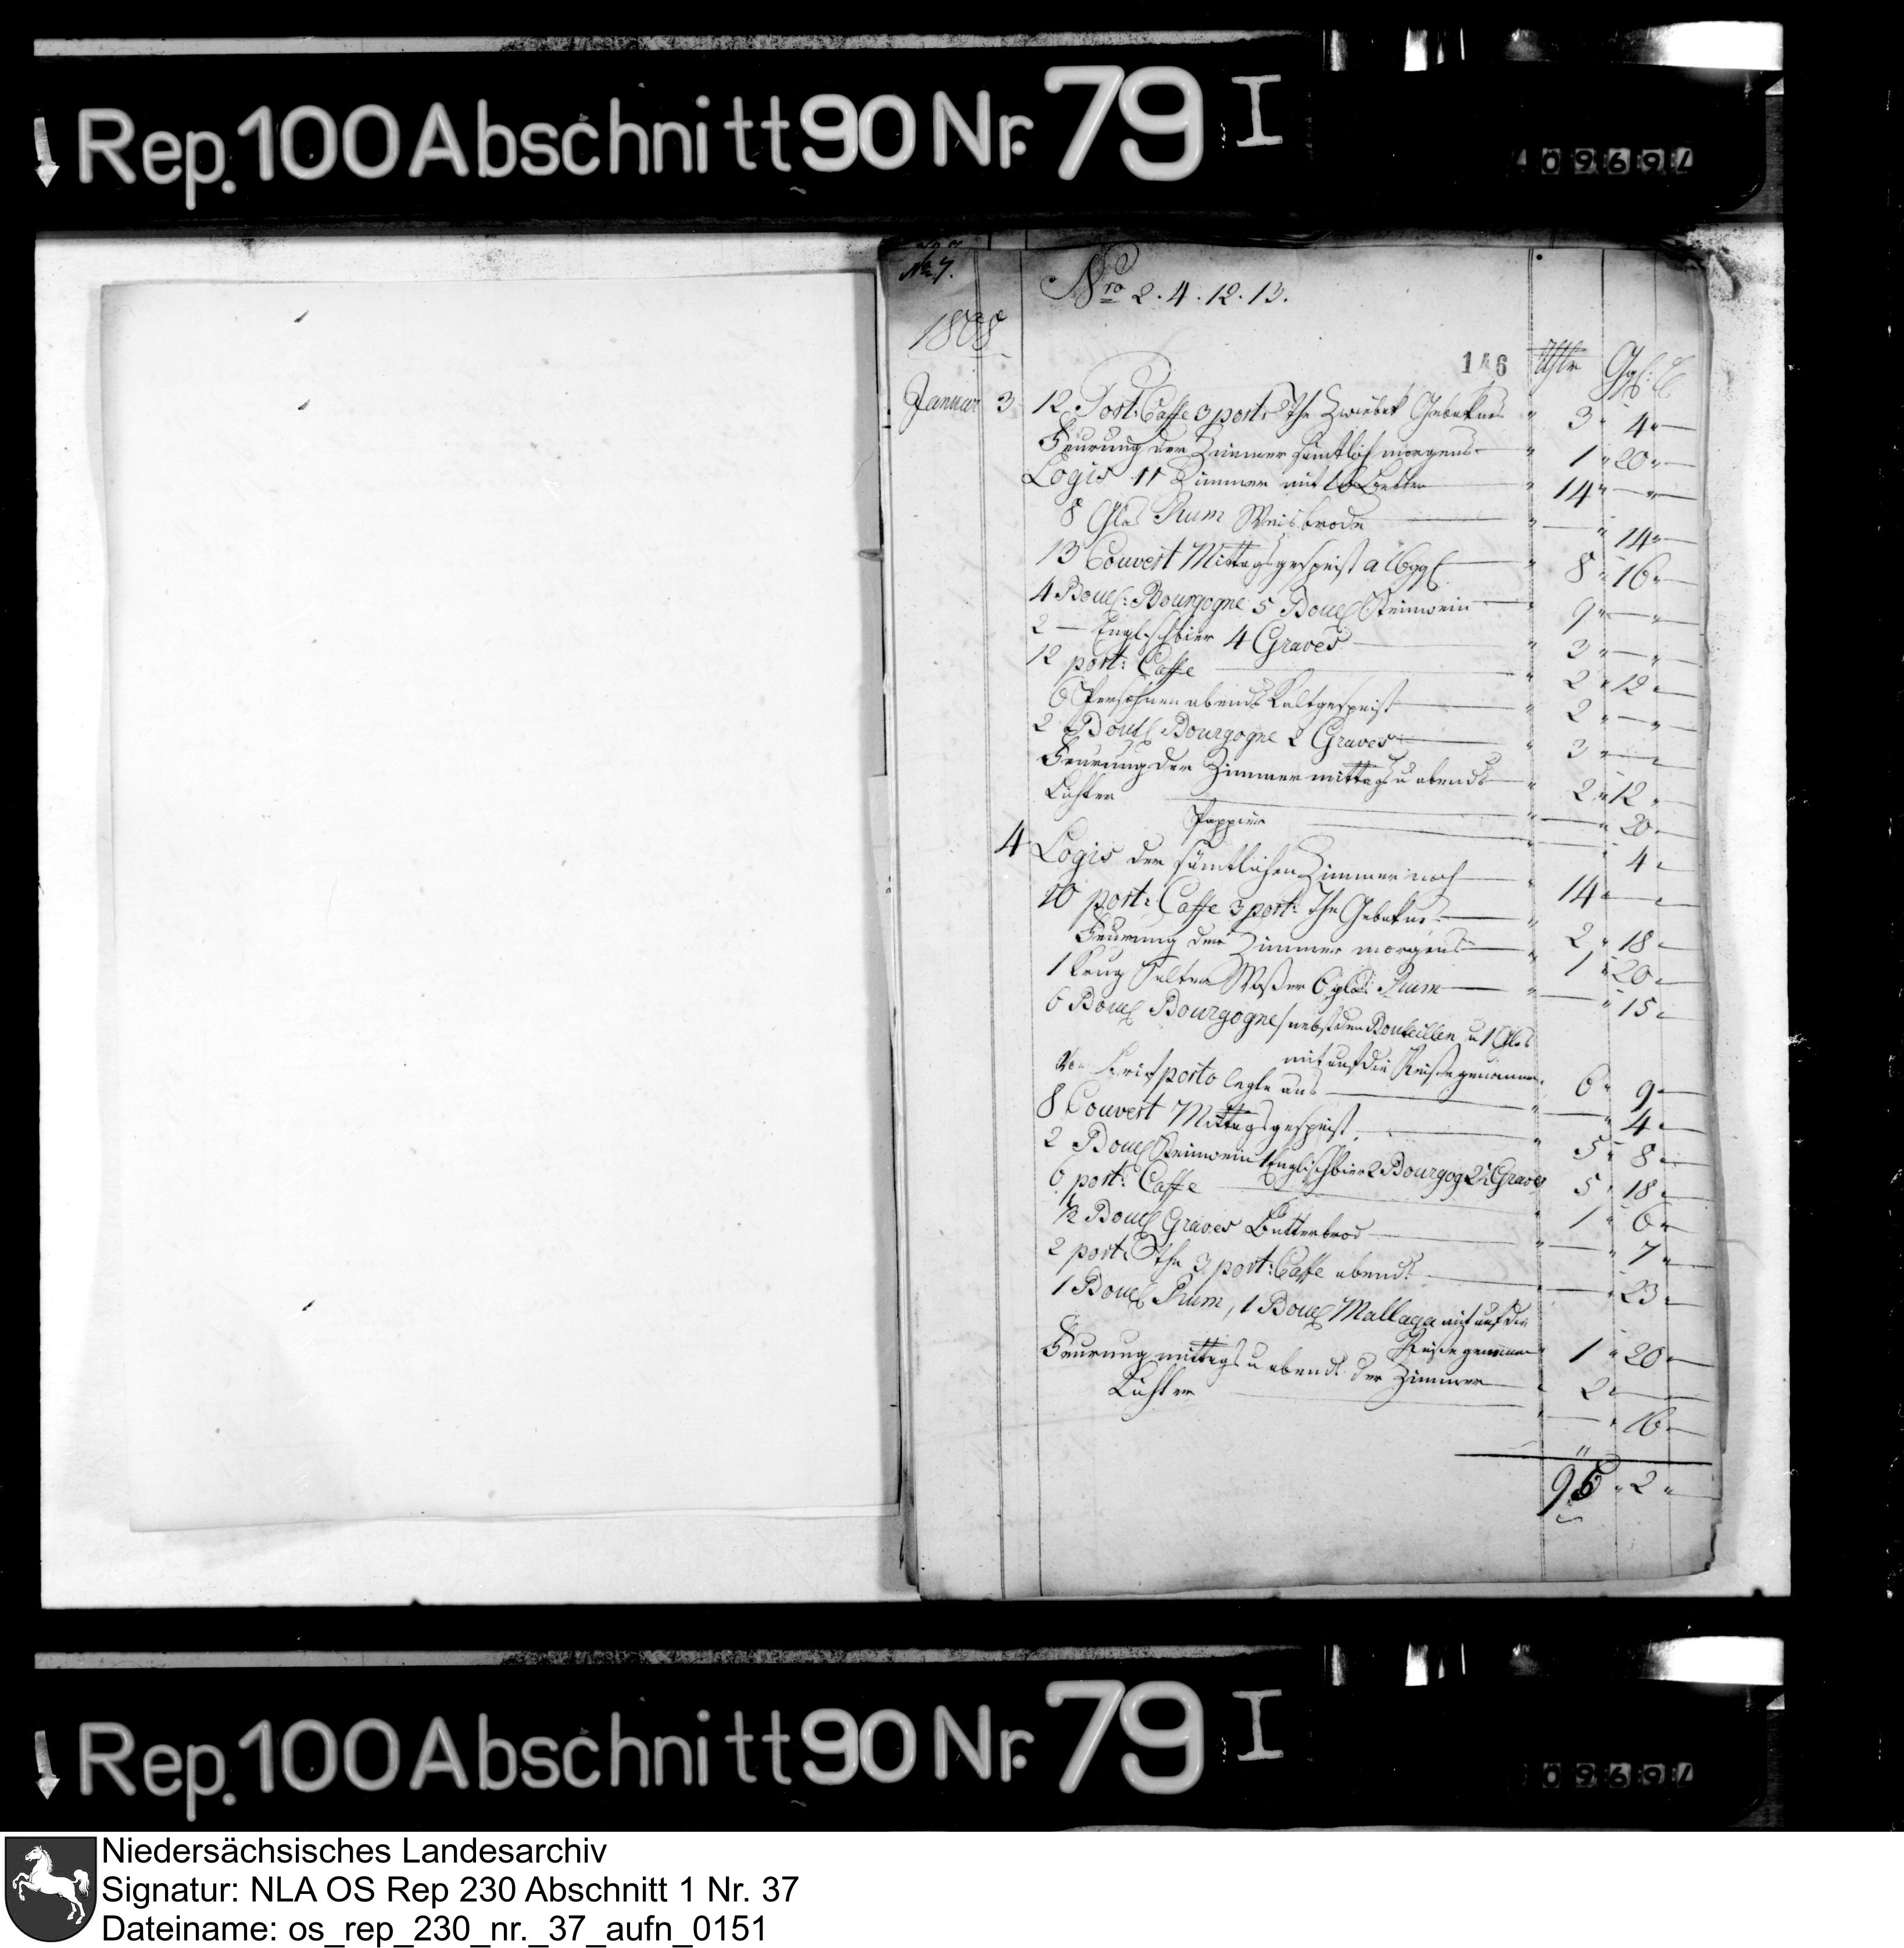 Rep. 100 Abschnitt 90 Nr. 79 I
No 7.
Nro 2. 4. 12. 13.
1808
146 Rthlr Ggl:
Januar 3 12 Port: Caffe 3 port: The Zwiebak Gebaknes " 3 " 4 "
Feurung der Zimmer sämtlich morgens " 1 " 20 "
Logis 11 Zimmer mit 16 Better " 14 " — "
8 Glas Rum Weisbrode " — " 14 "
13 Couvert Mittags gespeist a 16 ggl " 8 " 16 "
4 Boutl: Bourgogne 5 Boutl Steinwein " 9 " — "
2 — Englischbier 4 Graves " 3 " — "
12 port: Caffe " 2 " 12 "
6 Persohnen abends Kaltgespeist " 2 " — "
2 Boutl Bourgogne 2 Graves " 3 " — "
Feurung der Zimmer mittags u abends " 2 " 12 "
Lichter " — " 20 "
Pappier " — " 4 "
4 Logis der sämtlichen Zimmer noch " 14 " — "
10 port: Caffe 3 port: The Gebaknes " 2 " 18 "
Feurung der Zimmer morgens " 1 " 20 "
1 Krug Selter Waßer 6 glas Rum " — " 15 "
6 Boutl Bourgogne / nebst den Bouteillen u 1 Glas
mit auf die Reise genomen " 6 " 9 "
Brief porto legte aus " — " 4 "
8 Couvert Mittags gespeist " 5 " 8 "
2 Boutl Steinwein 1 Englischbier 2 Bourgog 2 1/2 Graves 5 " 18 "
6 port: Caffe " 1 " 6 "
1/2 Boutl Graves Butterbrod " — " 7 "
2 port: The 3 port: Caffe abends " — " 23 "
1 Boutl Rum, 1 Boutl Mallaga mit auf die
Reise genomen " 1 " 20 "
Feurung mittags u abends der Zimmer " 2 " —
Lichter " — " 16 "
95 " 2 "
Rep. 100 Abschnitt 90 Nr. 79 I
Niedersächsisches Landesarchiv
Signatur: NLA OS Rep 230 Abschnitt 1 Nr. 37
Dateiname: os_rep_230_nr._37_aufn_0151